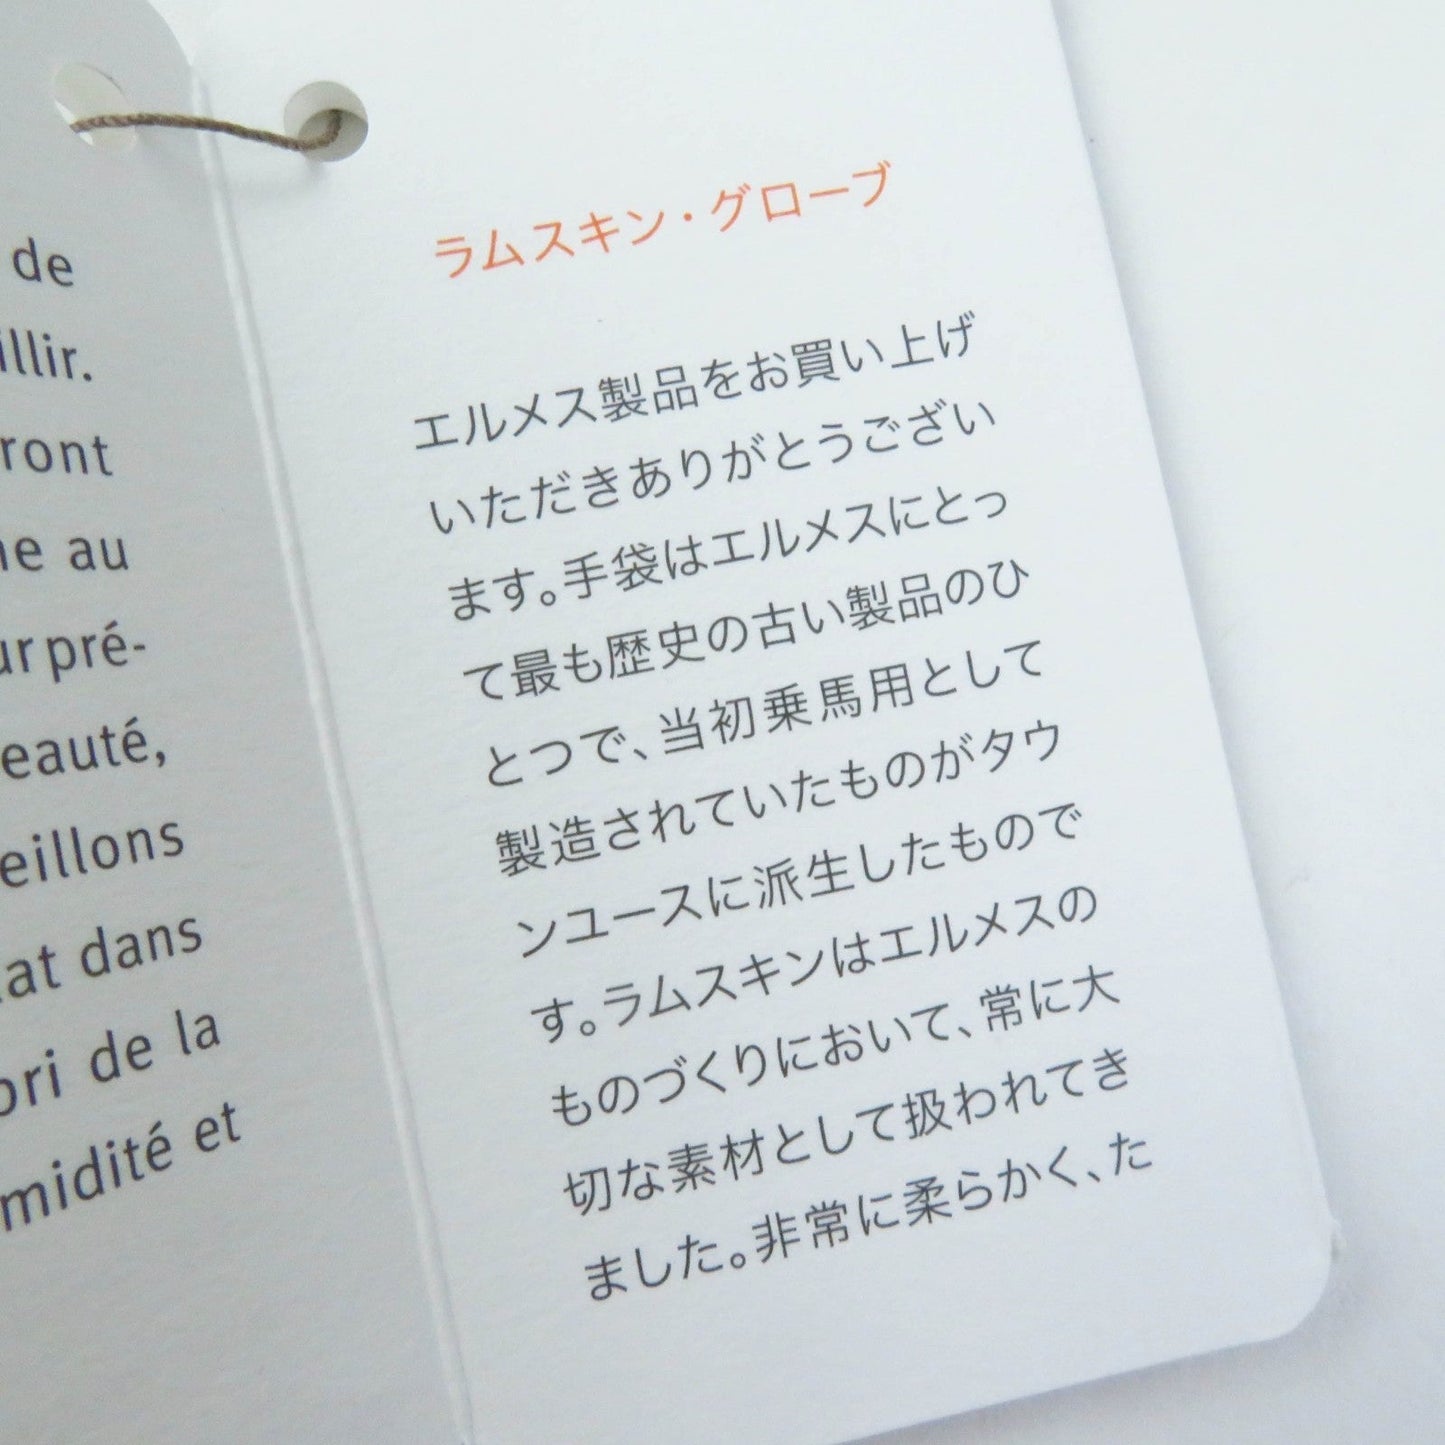 de
illir.
ront
ne au
ur pré-
eauté,
eillons
at dans
ori de la
midité et
ラムスキン・グローブ
エルメス製品をお買い上げ
いただきありがとうござい
ます。手袋はエルメスにとっ
て最も歴史の古い製品のひ
とつで、当初乗馬用として
製造されていたものがタウ
ンユースに派生したもので
す。ラムスキンはエルメスの
ものづくりにおいて、常に大
切な素材として扱われてき
ました。非常に柔らかく、た